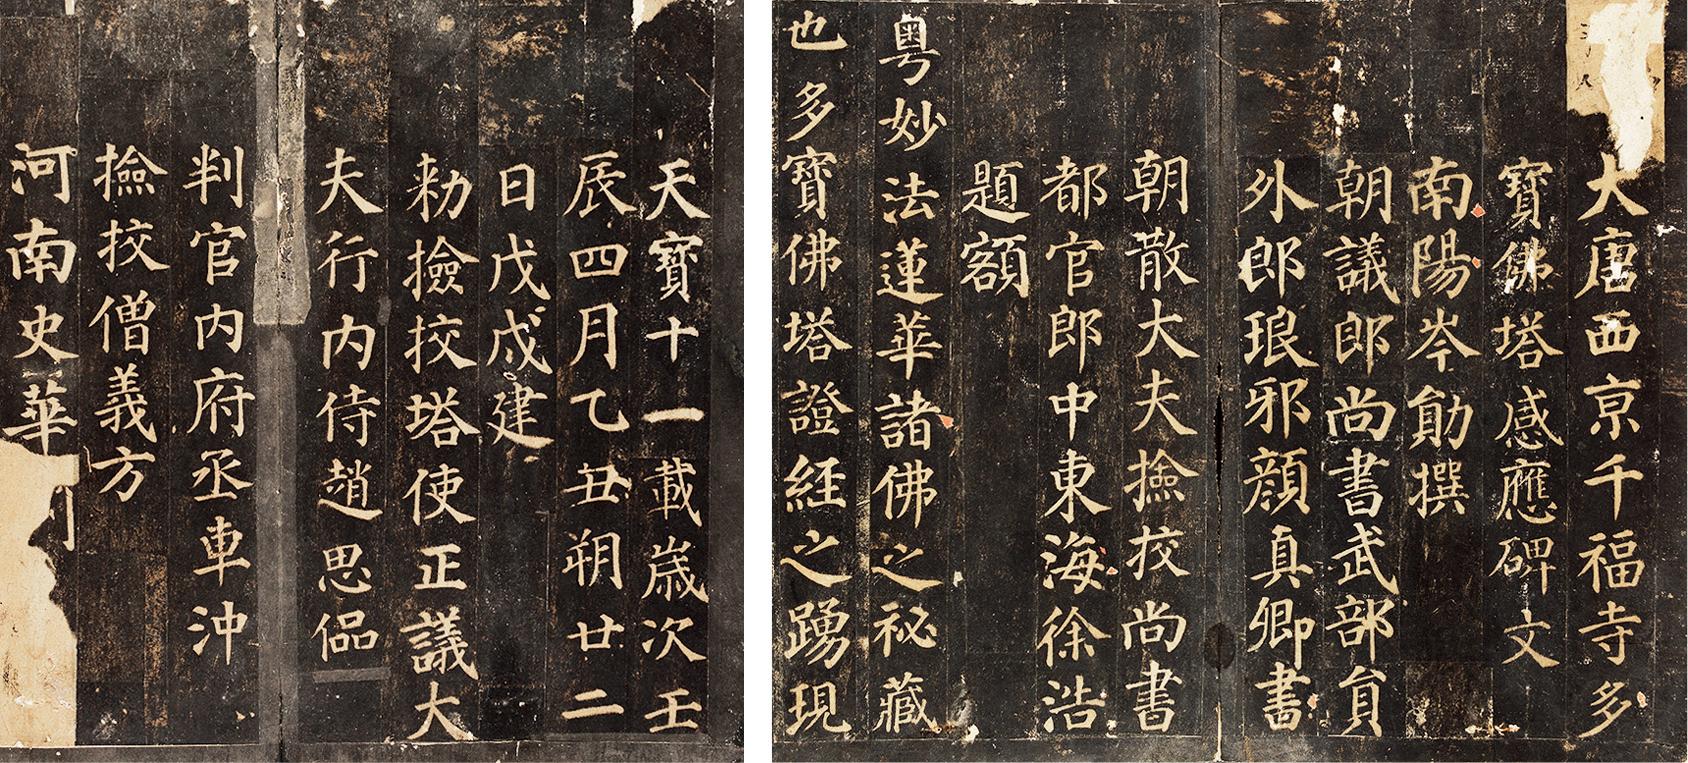 大唐西亰千福寺多
寶佛塔感應碑文
南陽岑勛撰
朝議郎尚書武部貟
外郎琅邪顏真卿書
朝散大夫撿挍尚書
都官郎中東海徐浩
題額
粵妙法蓮華諸佛之祕藏
也多寶佛塔證經之踴現
天寶十一載歲次壬
辰四月乙丑朔廿二
日戊戌建
勑撿挍塔使正議大
夫行内侍趙思偘
判官内府丞車沖
撿挍僧義方
河南史華